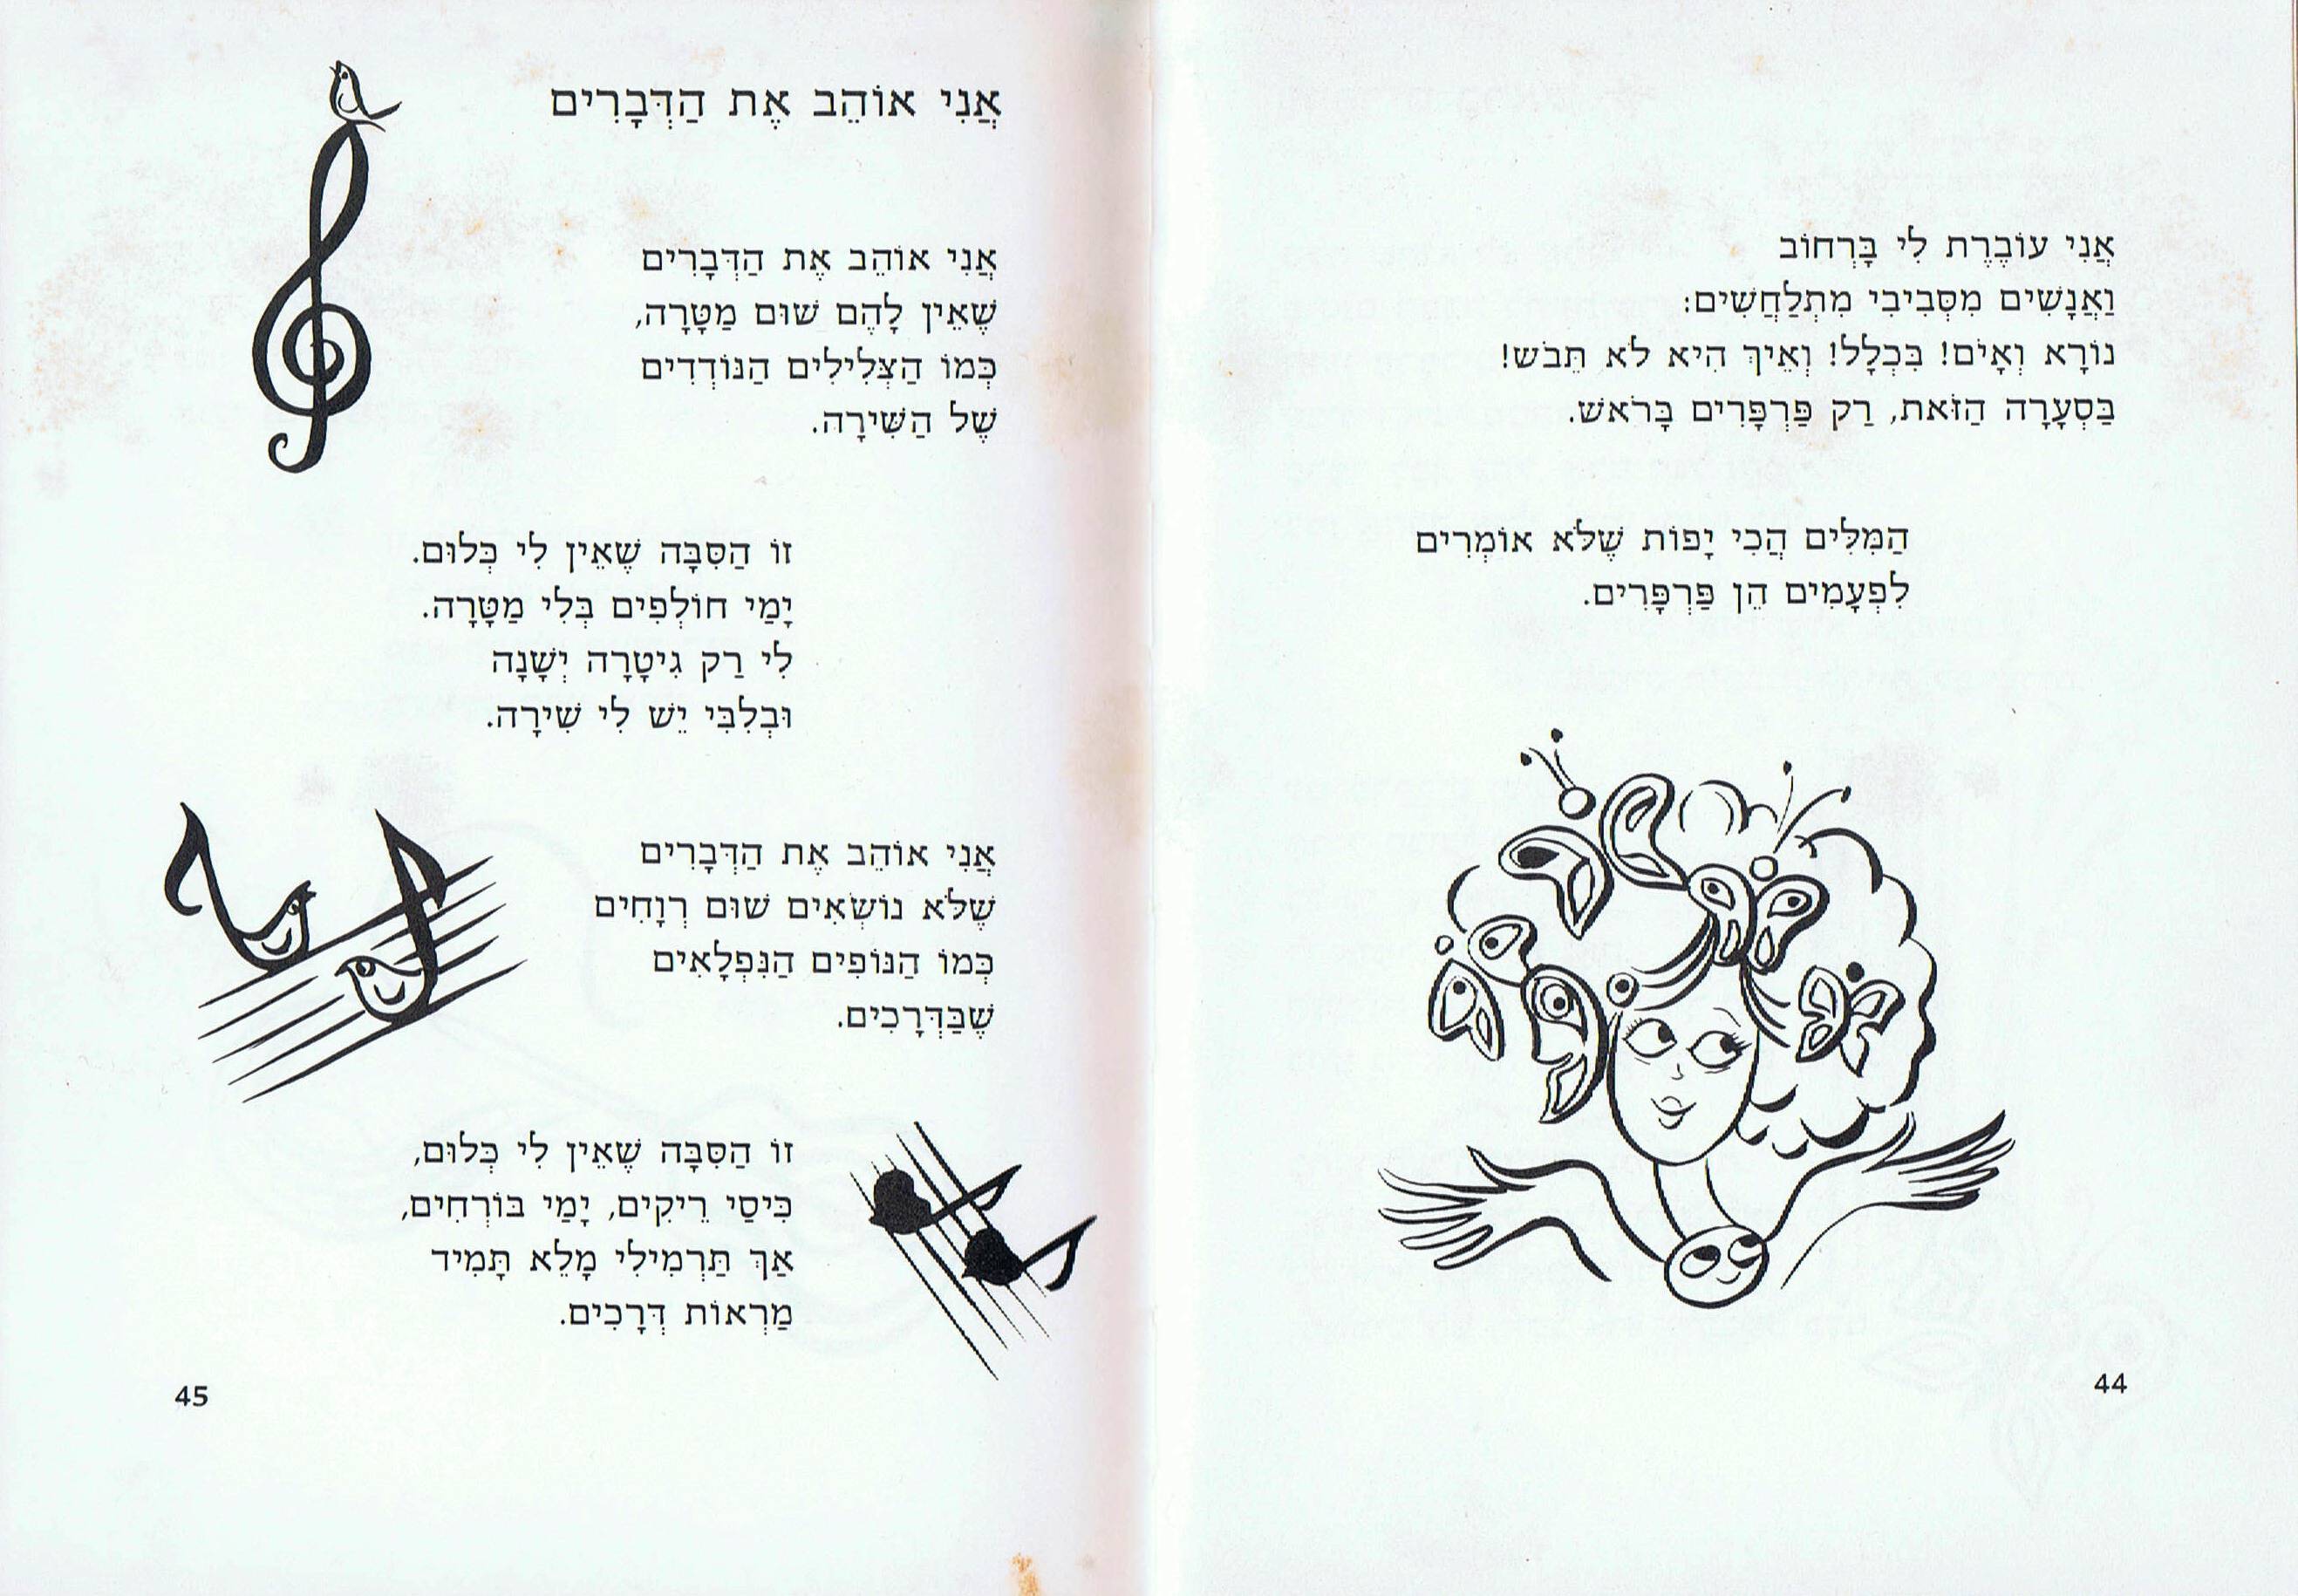 אֲנִי עוֹבֶרֶת לִי בָּרְחוֹב
וַאֲנָשִׁים מִסְּבִיבִי מִתְלַחֲשִׁים:
נוֹרָא וְאָיֹם! בִּכְלָל! וְאֵיךְ הִיא לֹא תֵּבֹש!
בַּסְעָרָה הַזֹּאת, רַק פַּרְפָּרִים בָּרֹאשׁ.
הַמִּלִּים הֲכִי יָפוֹת שֶׁלֹּא אוֹמְרִים
לִפְעָמִים הֵן פַּרְפָּרִים.
44
אֲנִי אוֹהֵב אֶת הַדְּבָרִים
אֲנִי אוֹהֵב אֶת הַדְּבָרִים
שֶׁאֵין לָהֶם שׁוּם מַטָּרָה,
כְּמוֹ הַצְּלִילִים הַנּוֹדְדִים
שֶׁל הַשִּׁירָה.
זוֹ הַסִּבָּה שֶׁאֵין לִי כְּלוּם.
יָמַי חוֹלְפִים בְּלִי מַטָּרָה.
לִי רַק גִיטָרָה יְשָׁנָה
וּבְלִבִּי יֵשׁ לִי שִׁירָה.
אֲנִי אוֹהֵב אֶת הַדְּבָרִים
שֶׁלֹּא נוֹשְׂאִים שׁוּם רְוָחִים
כְּמוֹ הַנּוֹפִים הַנִּפְלָאִים
שֶׁבַּדְּרָכִים.
זוֹ הַסִּבָּה שֶׁאֵין לִי כְּלוּם,
כִּיסַי רֵיקִים, יָמַי בּוֹרְחִים,
אַךְ תַּרְמִילִי מָלֵא תָּמִיד
מַרְאוֹת דְּרָכִים.
45